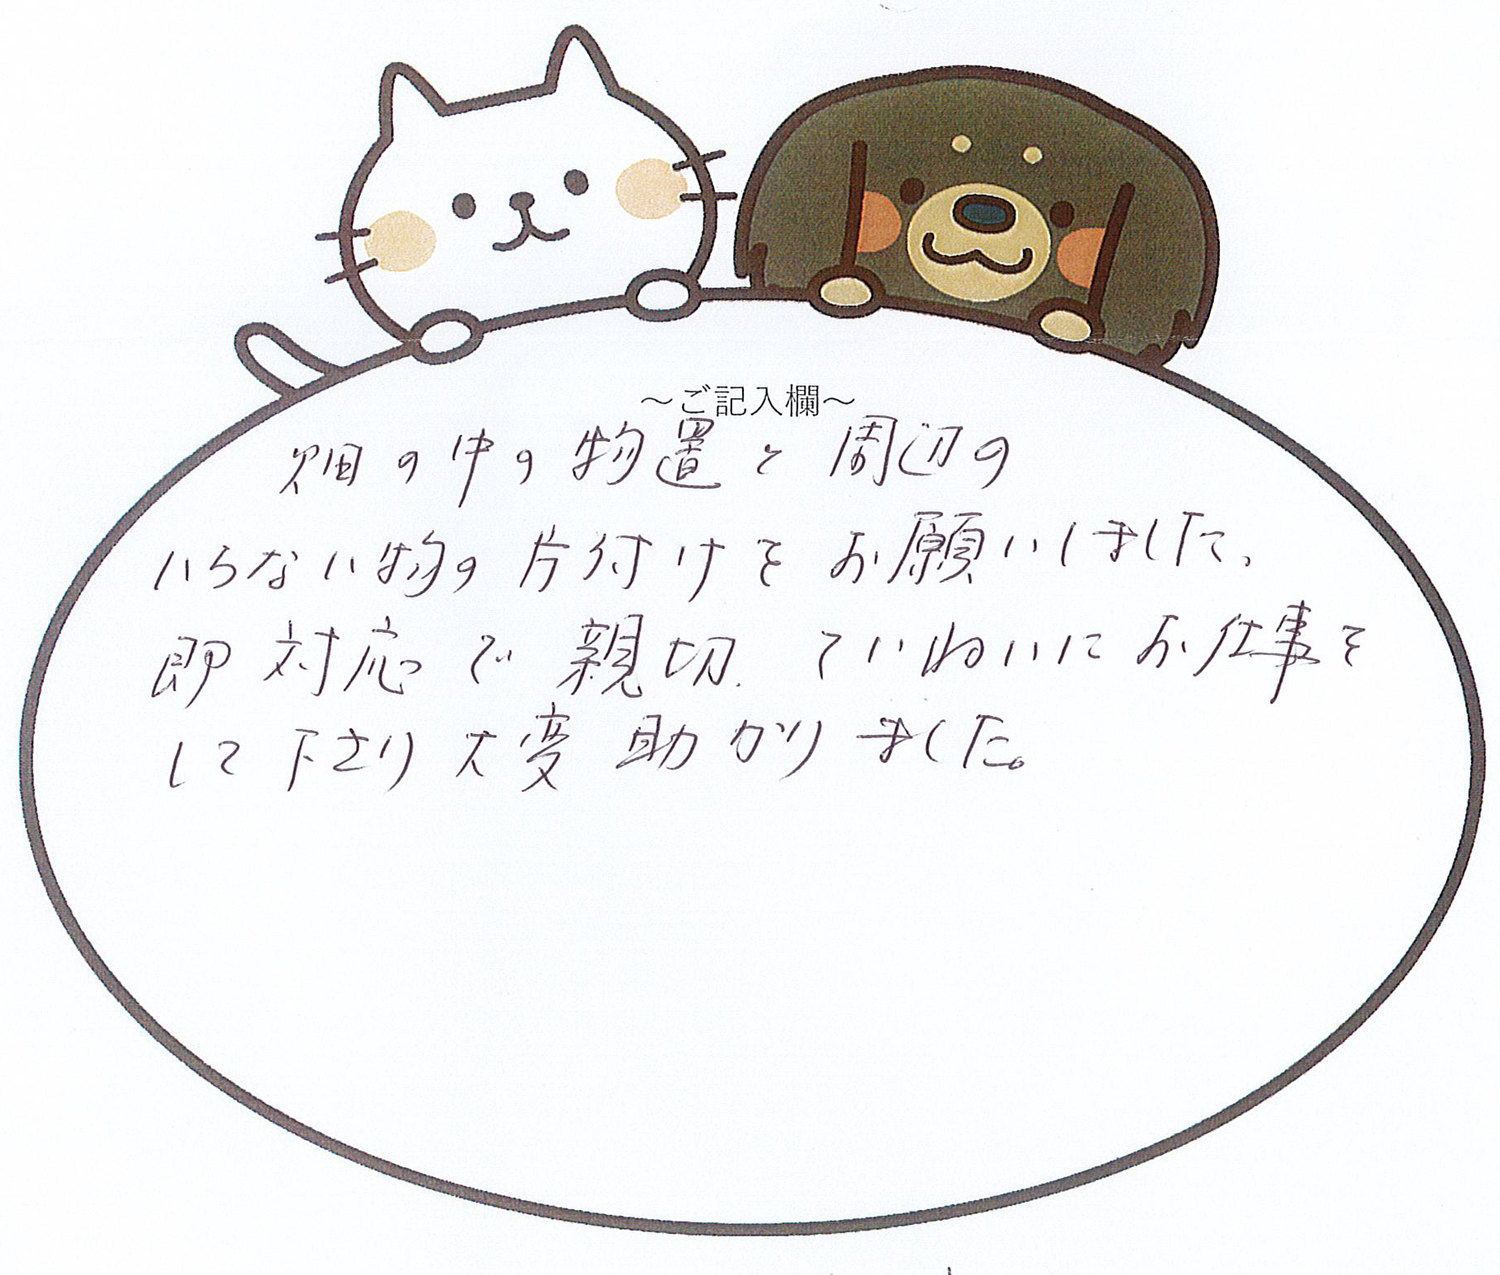 ～ご記入欄～
畑の中の物置と周辺の
いらない物の片付けをお願いしました、
即対応で親切、ていねいにお仕事を
して下さり大変助かりました。